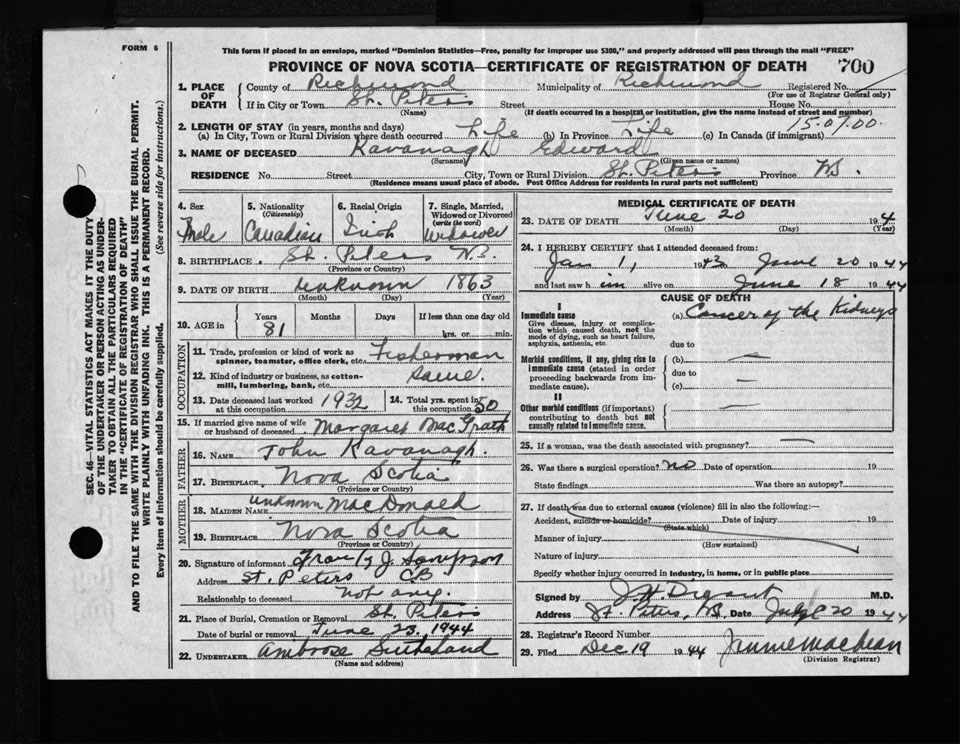 FORM 6
This form if placed in an envelope, marked "Dominion Statistics—Free, penalty for improper use $300," and properly addressed will pass through the mail "FREE"
PROVINCE OF NOVA SCOTIA—CERTIFICATE OF REGISTRATION OF DEATH 700
1. PLACE OF DEATH County of Richmond Municipality of Richmond Registered No.
(For use of Registrar General only)
If in City or Town St. Peters Street House No.
(Name) (If death occurred in a hospital or institution, give the name instead of street and number)
15.07.00.
2. LENGTH OF STAY (in years, months and days)
(a) In City, Town or Rural Division where death occurred Life (b) In Province Life (c) In Canada (if immigrant)
3. NAME OF DECEASED Kavanagh Edward
(Surname) (Given name or names)
RESIDENCE No. Street City, Town or Rural Division St. Peters Province N.S.
(Residence means usual place of abode. Post Office Address for residents in rural parts not sufficient)
4. Sex Male
5. Nationality (Citizenship) Canadian
6. Racial Origin Irish
7. Single, Married, Widowed or Divorced (write the word) Widower
8. BIRTHPLACE St. Peters N.S.
(Province or Country)
9. DATE OF BIRTH unknown 1863
(Month) (Day) (Year)
10. AGE in Years Months Days If less than one day old
81 hrs. or min.
OCCUPATION
11. Trade, profession or kind of work as spinner, teamster, office clerk, etc. Fisherman
12. Kind of industry or business, as cotton-mill, lumbering, bank, etc. Same.
13. Date deceased last worked at this occupation 1932 14. Total yrs. spent in this occupation 50
15. If married give name of wife or husband of deceased Margaret MacGrath
FATHER
16. NAME John Kavanagh.
17. BIRTHPLACE Nova Scotia
(Province or Country)
MOTHER
18. MAIDEN NAME unknown MacDonald
19. BIRTHPLACE Nova Scotia
(Province or Country)
20. Signature of informant J. Sampson
Address St. Peters CB
Relationship to deceased not any.
21. Place of Burial, Cremation or Removal St. Peters
Date of burial or removal June 23. 1944
22. UNDERTAKER Ambrose Sutherland
(Name and address)
MEDICAL CERTIFICATE OF DEATH
23. DATE OF DEATH June 20 194
(Month) (Day) (Year)
24. I HEREBY CERTIFY that I attended deceased from:
Jan 1, 1943 June 20 1944
and last saw him alive on June 18 1944
CAUSE OF DEATH
I
Immediate cause
Give disease, injury or complication which caused death, not the mode of dying, such as heart failure, asphyxia, asthenia, etc.
(a) Cancer of the Kidneys
due to
Morbid conditions, if any, giving rise to immediate cause (stated in order proceeding backwards from immediate cause).
(b) —
due to
(c) —
II
Other morbid conditions (if important) contributing to death but not causally related to immediate cause.
—
25. If a woman, was the death associated with pregnancy? —
26. Was there a surgical operation? no Date of operation 19
State findings Was there an autopsy?
27. If death was due to external causes (violence) fill in also the following:—
Accident, suicide or homicide? Date of injury 19
(State which)
Manner of injury
(How sustained)
Nature of injury
Specify whether injury occurred in industry, in home, or in public place
Signed by M.D.
Address St. Peters, N.S. Date 20 1944
28. Registrar's Record Number
29. Filed Dec 19 1944
(Division Registrar)
SEC. 46—VITAL STATISTICS ACT MAKES IT THE DUTY
OF THE UNDERTAKER OR PERSON ACTING AS UNDER-
TAKER TO OBTAIN ALL THE PARTICULARS REQUIRED
IN THE "CERTIFICATE OF REGISTRATION OF DEATH"
AND TO FILE THE SAME WITH THE DIVISION REGISTRAR WHO SHALL ISSUE THE BURIAL PERMIT.
WRITE PLAINLY WITH UNFADING INK. THIS IS A PERMANENT RECORD.
Every item of information should be carefully supplied. (See reverse side for instructions.)